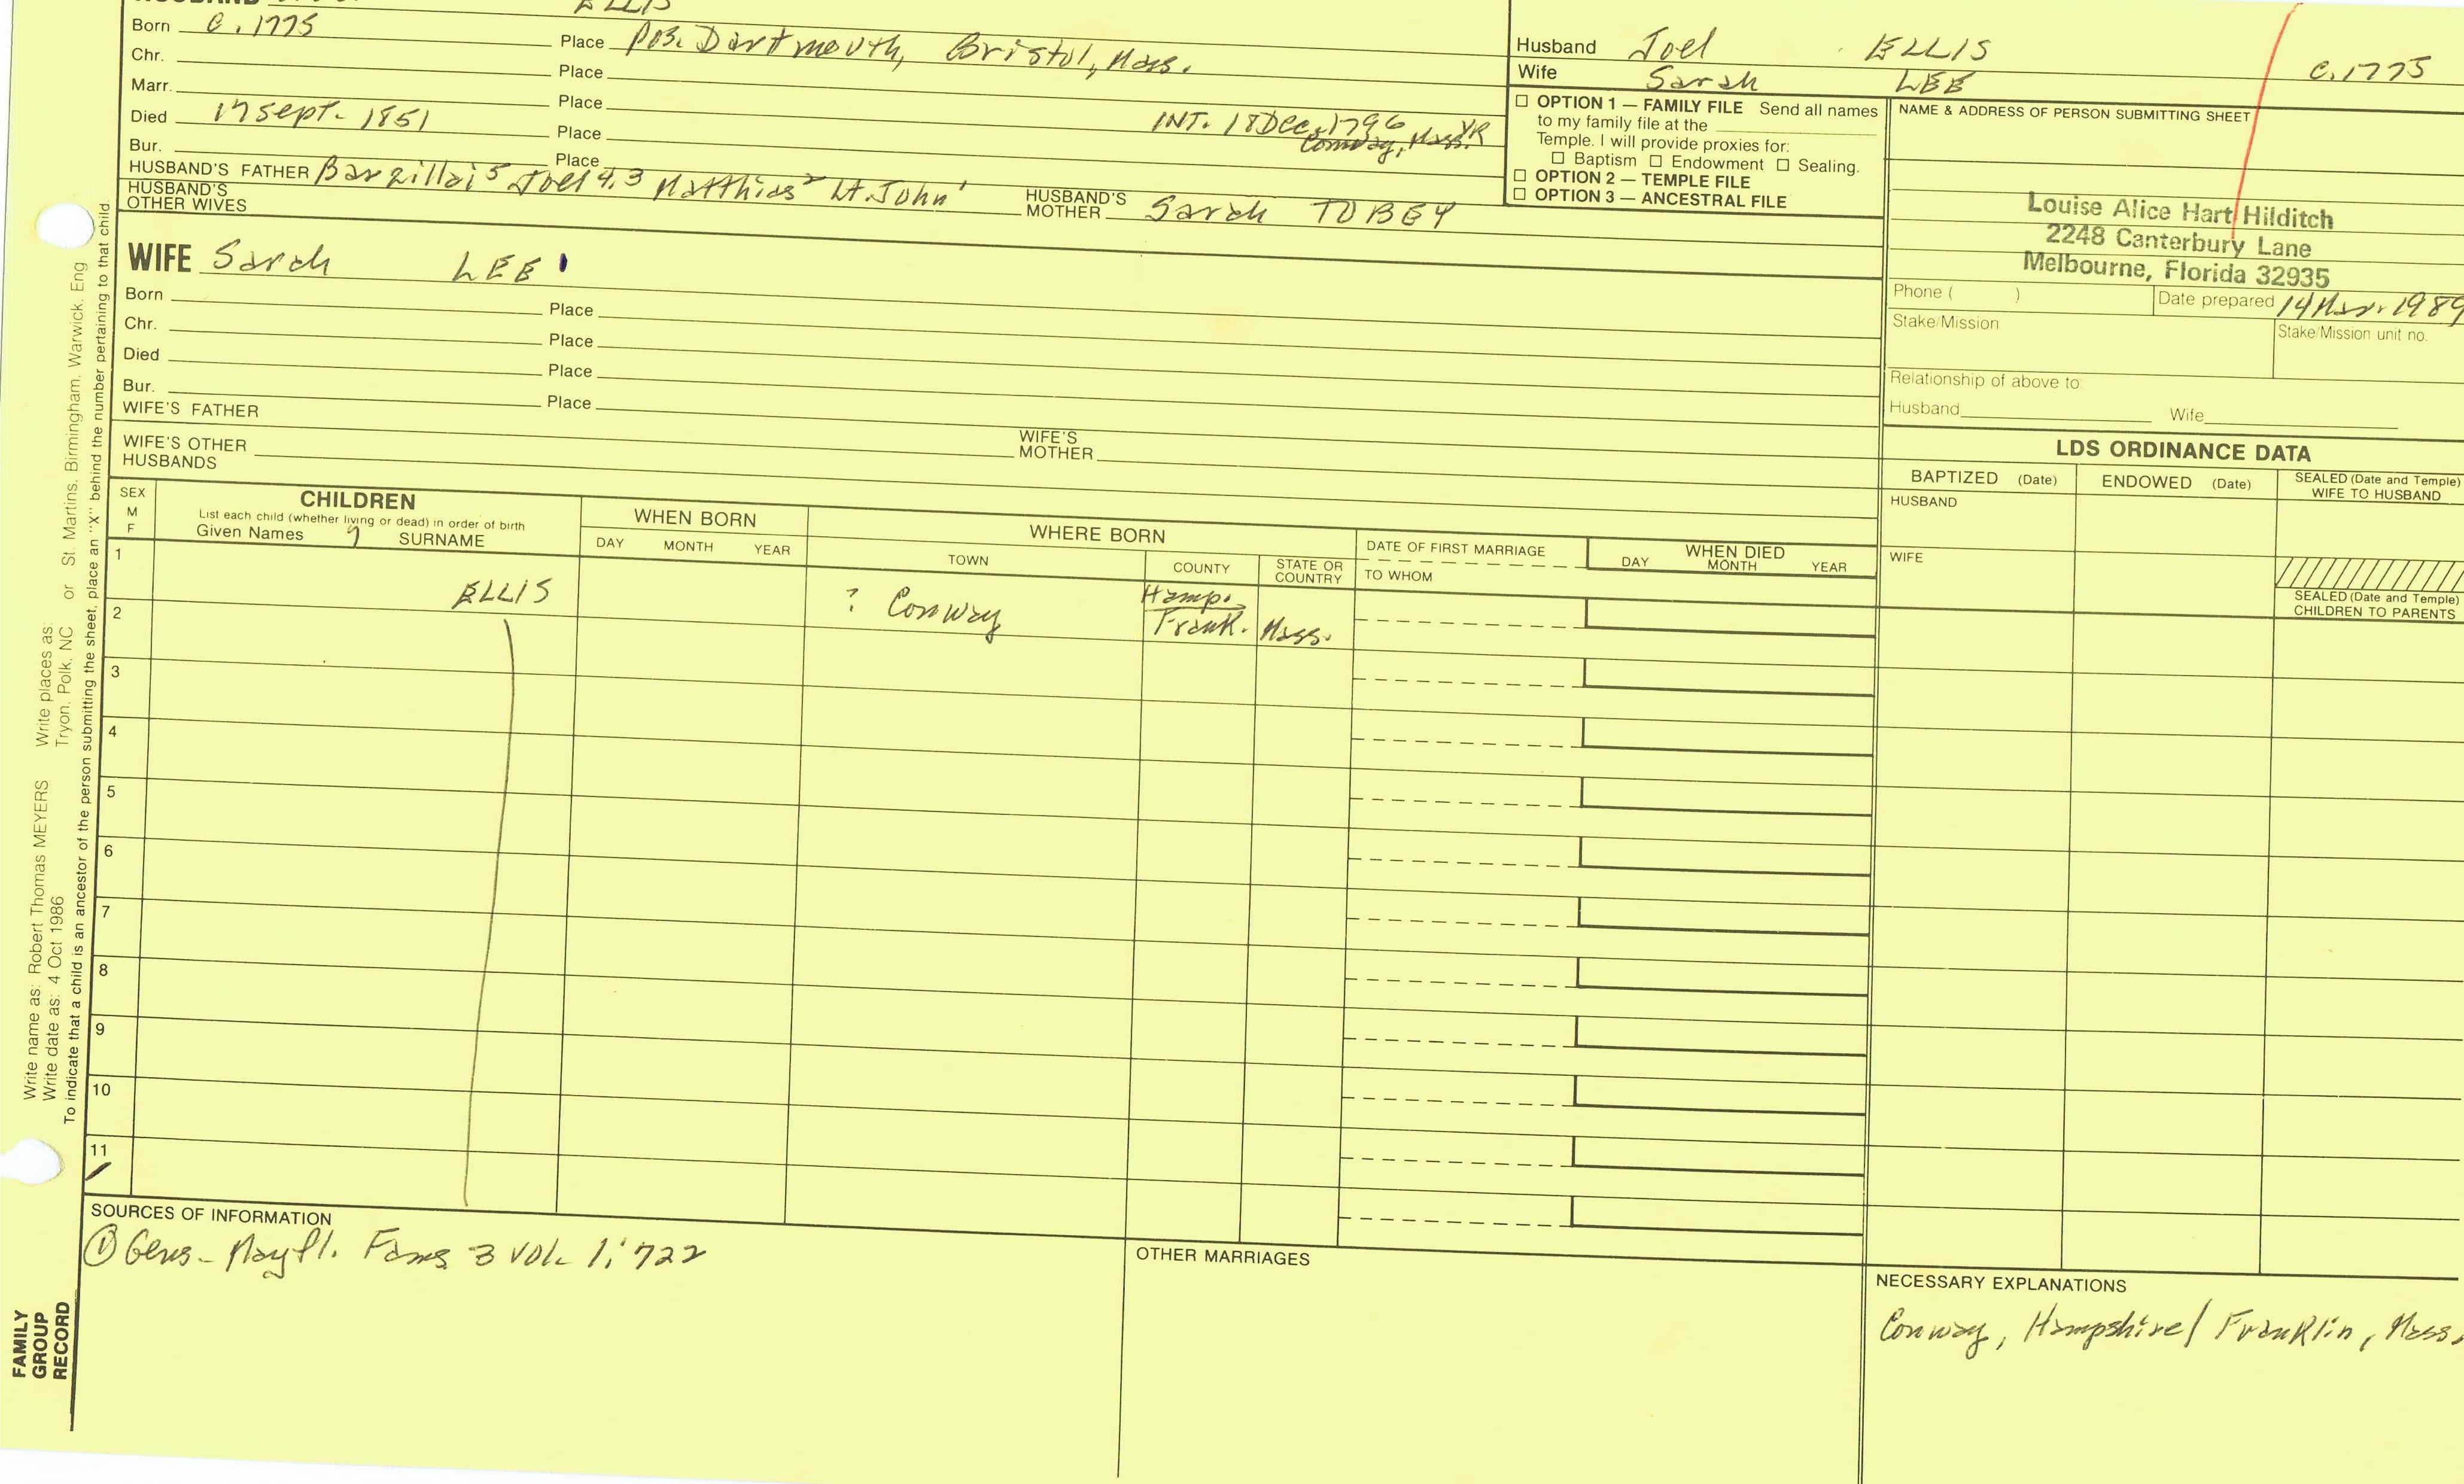 ELLIS
Born C. 1775 Place Pos. Dartmouth, Bristol, Mass.
Chr. Place
Marr. Place INT. 18 Dec. 1796 Conway, Mass. VR
Died 17 Sept. 1851 Place
Bur. Place
HUSBAND'S FATHER Barzillai 5 Joel 4,3 Matthias 2 Lt. John 1
HUSBAND'S MOTHER Sarah TOBEY
HUSBAND'S OTHER WIVES
WIFE Sarah LEE
Born Place
Chr. Place
Died Place
Bur. Place
WIFE'S FATHER
WIFE'S MOTHER
WIFE'S OTHER HUSBANDS
Husband Joel ELLIS C. 1775
Wife Sarah LEE
☐ OPTION 1 — FAMILY FILE Send all names
to my family file at the
Temple. I will provide proxies for:
☐ Baptism ☐ Endowment ☐ Sealing.
☐ OPTION 2 — TEMPLE FILE
☐ OPTION 3 — ANCESTRAL FILE
NAME & ADDRESS OF PERSON SUBMITTING SHEET
Louise Alice Hart Hilditch
2248 Canterbury Lane
Melbourne, Florida 32935
Phone ( ) Date prepared 14 Mar. 1989
Stake/Mission Stake/Mission unit no.
Relationship of above to:
Husband Wife
LDS ORDINANCE DATA
BAPTIZED (Date) ENDOWED (Date) SEALED (Date and Temple) WIFE TO HUSBAND
HUSBAND
WIFE
SEALED (Date and Temple)
CHILDREN TO PARENTS
SEX M F
CHILDREN
List each child (whether living or dead) in order of birth
Given Names SURNAME
WHEN BORN
DAY MONTH YEAR
WHERE BORN
TOWN COUNTY STATE OR COUNTRY
DATE OF FIRST MARRIAGE
TO WHOM
WHEN DIED
DAY MONTH YEAR
1 ELLIS ? Conway Hamp. Frank. Mass.
2
3
4
5
6
7
8
9
10
11
SOURCES OF INFORMATION
① Gens-Mayfl. Fams 3 Vol. 1:722
OTHER MARRIAGES
NECESSARY EXPLANATIONS
Conway, Hampshire/Franklin, Mass.
Write name as: Robert Thomas MEYERS Write places as:
Write date as: 4 Oct 1986 Tryon, Polk, NC or St. Martins, Birmingham, Warwick, Eng
To indicate that a child is an ancestor of the person submitting the sheet, place an "X" behind the number pertaining to that child.
FAMILY
GROUP
RECORD